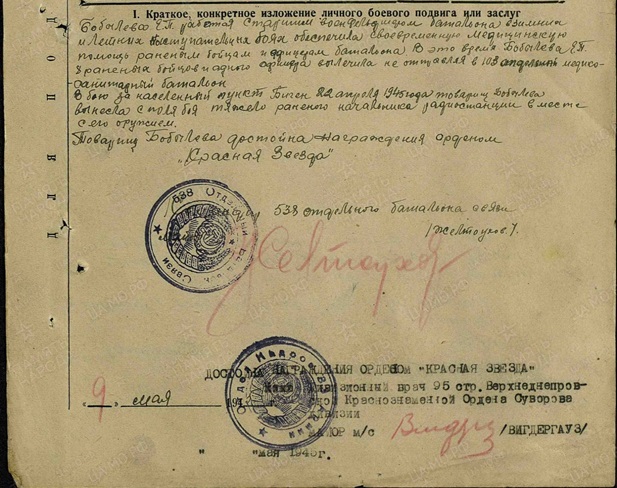 I. Краткое, конкретное изложение личного боевого подвига или заслуг
Бобылева Е.П. работая старшим военфельдшером батальона в зимних
и летних наступательных боях обеспечила своевременную медицинскую
помощь раненым бойцам и офицерам батальона. В это время Бобылева Е.П.
раненых бойцов и одного офицера вылечила не отправляя в 103 отдельный медико-
санитарный батальон
В бою за населенный пункт 22 апреля 1945 года товарищ Бобылева
вынесла с поля боя тяжело раненого начальника радиостанции вместе
с его оружием.
Товарищ Бобылева достойна награждения орденом
„Красная Звезда"
538 отдельного батальона связи
/Желтоухов/.
538 Отдельный Батальон Связи
ДОСТОЙНА НАГРАЖДЕНИЯ ОРДЕНОМ "КРАСНАЯ ЗВЕЗДА"
дивизионный врач 95 стр. Верхнеднепров-
ской Краснознаменной Ордена Суворова
дивизии
МАЙОР м/с /ВИГДЕРГАУЗ/
„9" мая 194 г.
" "мая 1945г.
Отдел Кадров
ДЛЯ ПОД